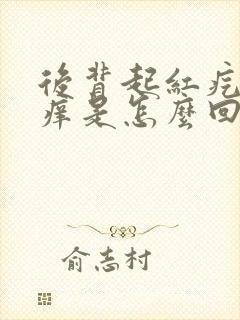 後背起紅疙
痒是怎麼回
俞志村